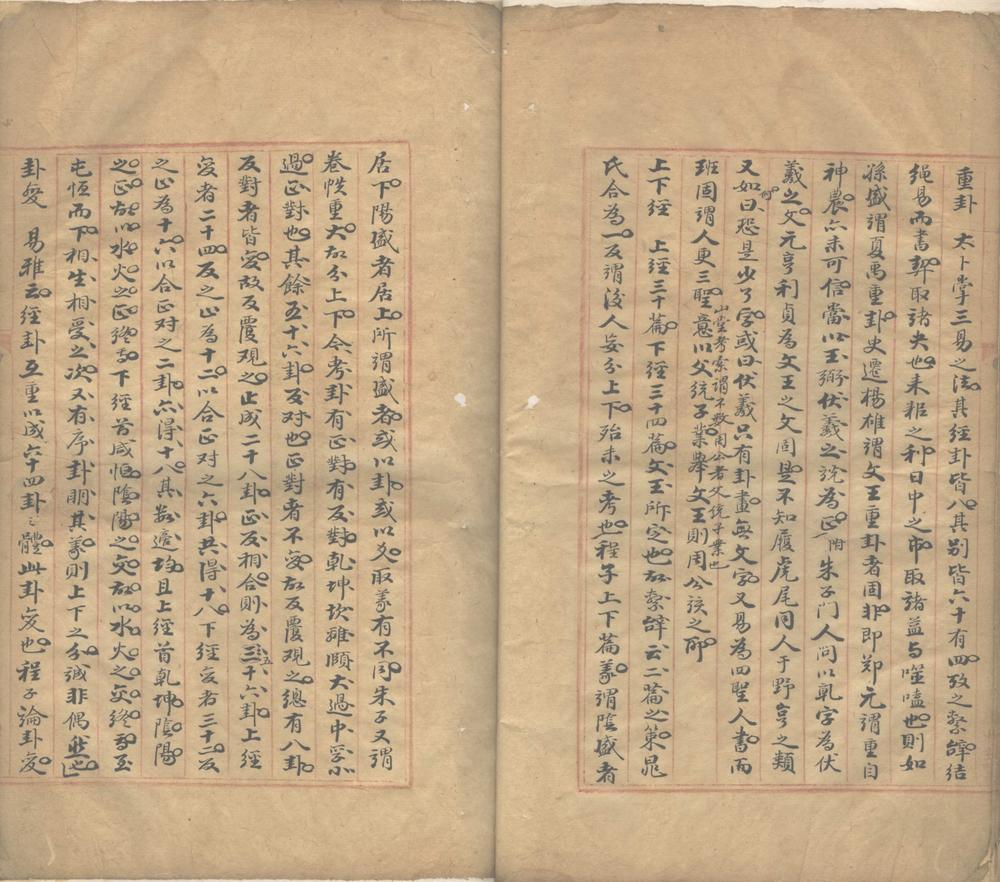 重卦　太卜掌三易之法其經卦皆八其别皆六十有四攷之繫辭結
繩易而書契取諸夬也耒耜之利日中之市取諸益与噬嗑也則如
孫盛謂夏禹重卦史遷楊雄謂文王重卦者固非即鄭元謂重自
神農亦未可信當以王弼伏羲之說為正附朱子門人問以乾字為伏
羲之文元亨利貞為文王之文固是不知履虎尾同人于野亨之類
又如何曰恐是少了字或曰伏羲只有卦畫無文字又易為四聖人書而
班固謂人更三聖意以父統子業舉文王則周公該之耶
山堂考索謂不數周公者父統子業也
上下經　上經三十篇下經三十四篇文王所定也故繫辭云二篇之策晁
氏合為一反謂後人妄分上下殆未之考也程子上下篇義謂陰盛者
居下陽盛者居上所謂盛者或以卦或以爻取義有不同朱子又謂
卷帙重大故分上下今考卦有正對有反對乾坤坎離頤大過中孚小
過正對也其餘五十六卦反對也正對者不变故反覆观之總有八卦
反對者皆变故反覆观之止成二十八卦正反相合則為三十六卦上經
变者二十四反之止為十二以合正对之六卦共得十八下經变者三十二反
之止為十六以合正对之二卦亦得十八其数適均且上經首乾坤陰陽
之正故以水火之正終焉下經首咸恒陰陽之交故以水火之交終焉至
屯恒而下相生相受之次又有序卦明其義則上下之分诚非偶然也
卦变　易雅云經卦互重以成六十四卦之體此卦变也程子論卦变